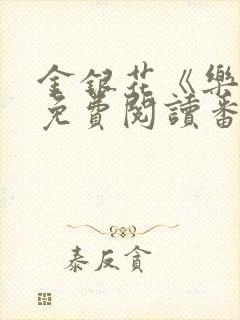 金銀花《樂
免費閱讀番
泰反貪